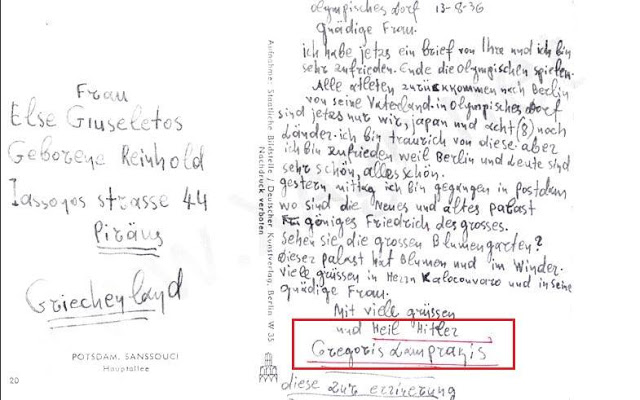 Frau
Else Giuseletos
Geborene Reinhold
Iassonos strasse 44
Piräus
Griechenland
POTSDAM, SANSSOUCI
Hauptallee
20
Aufnahme: Staatliche Bildstelle / Deutscher Kunstverlag, Berlin W 35
Nachdruck verboten
olympisches dorf 13-8-36
gnädige Frau.
ich habe jetzs ein brief von Ihre und ich bin
sehr zufrieden. Ende die olympischen spielen.
Alle atleten zurückkommen nach Berlin
von seine Vaterland. in olympisches dorf
sind jetzs nur wir, japan und acht (8) noch
Länder. ich bin traurich von diese aber
ich bin zufrieden weil Berlin und Leute sind
sehr schön, alles schön.
gestern, mittag ich bin gegangen in postdam
wo sind die Neues und altes palast
göniges Friedrich des grosses.
Sehen sie die grossen Blumengarten?
dieser palast hat Blumen und im Winder.
viele grüssen in Herrn Kalocouvaro und in seine
gnädige Frau.
Mit viele grüssen
und Heil Hitler
Gregoris Lampranis
diese zur erinerung